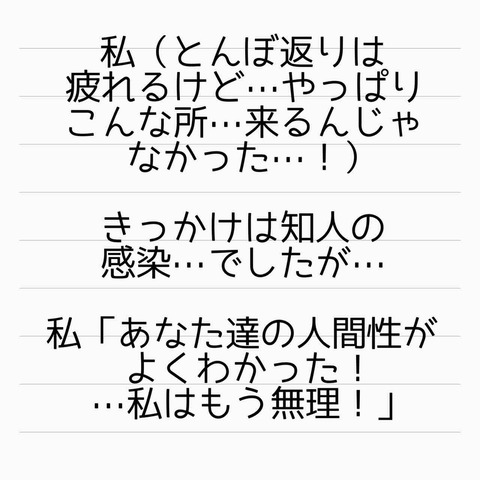 私（とんぼ返りは
疲れるけど…やっぱり
こんな所…来るんじゃ
なかった…！）
きっかけは知人の
感染…でしたが…
私「あなた達の人間性が
よくわかった！
…私はもう無理！」